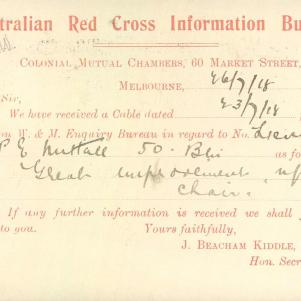 stralian Red Cross Information Bu
COLONIAL MUTUAL CHAMBERS, 60 MARKET STREET,
MELBOURNE, 26/7/18
Sir,
We have received a Cable dated 23/7/18
on W. & M. Enquiry Bureau in regard to No. Lieu
P E Nuttall 50. Bn as fo
"Great improvement, up
chair."
If any further information is received we shall
to you. Yours faithfully,
J. BEACHAM KIDDLE,
Hon. Secr